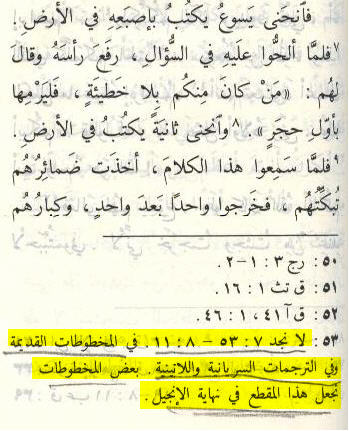 فآنحَنى يسوعُ يكتُبُ بإصبَعِهِ في الأرضِ.
٧فلمَّا ألحُّوا علَيهِ في السُّؤالِ ، رفَعَ رأسَهُ وقالَ
لهُم : «مَنْ كانَ مِنكُم بِلا خَطيئةٍ ، فليَرْمِها
بأوَّلِ حجَرٍ» . ٨وآنحنى ثانيَةً يكتُبُ في الأرضِ.
٩فلمَّا سَمِعوا هذا الكلامَ ، أخذَت ضَمائِرُهُم
تُبَكِّتُهُم ، فخَرجوا واحدًا بَعدَ واحدٍ ، وكِبارُهُم
٥٠ : رج ٣ : ١–٢ .
٥١ : ق تث ١ : ١٦ .
٥٢ : ق آ ٤١ ، ١ : ٤٦ .
٥٣ : لا نجد ٧ : ٥٣ – ٨ : ١١ في المخطوطات القديمة
وفي الترجمات السريانية واللاتينية . بعض المخطوطات
تجعل هذا المقطع في نهاية الإنجيل .